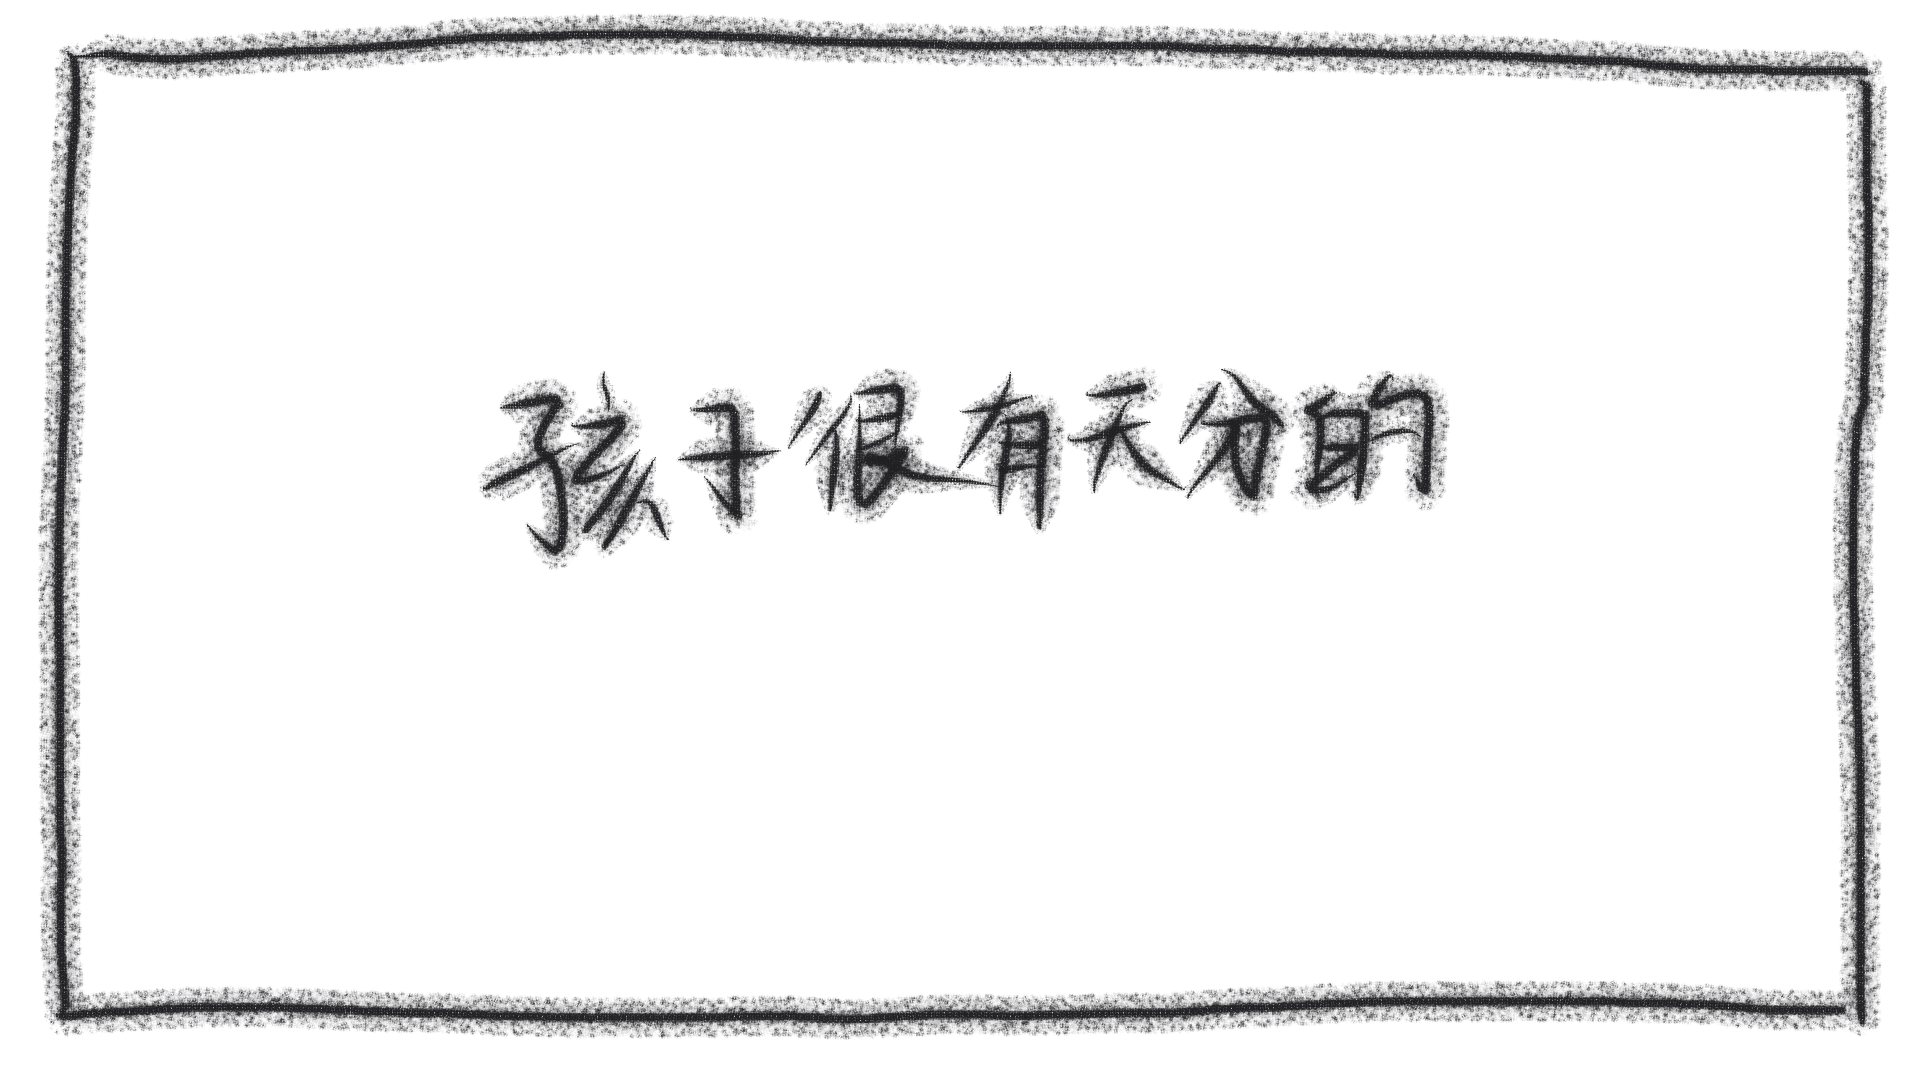 孩子很有天分的